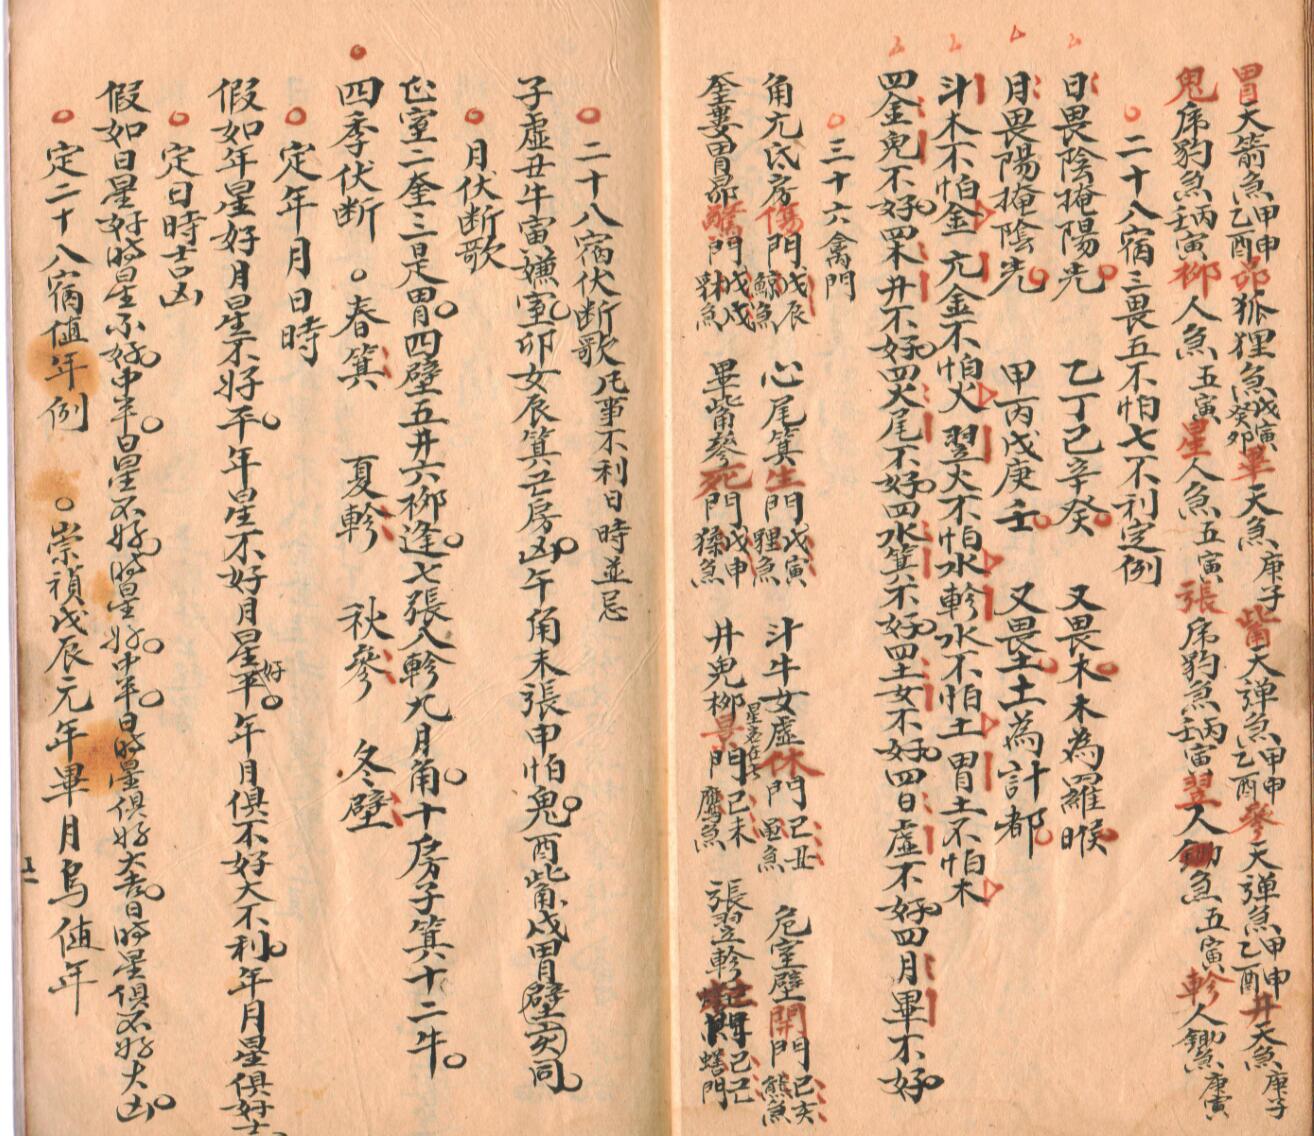 胃天箭急甲申乙酉昴狐狸急戊寅癸卯畢天急庚子觜天弹急甲申乙酉參天弹急甲申乙酉井天急庚子
鬼席豹急丙寅柳人急五寅星人急五寅張席豹急丙寅翌人鋤急五寅軫人鋤急庚寅
二十八宿三畏五不怕七不利定例
日畏陰掩陽光 乙丁己辛癸 又畏木木為羅睺
月畏陽掩陰光 甲丙戊庚壬 又畏土土為計都
斗木不怕金亢金不怕火翌火不怕水軫水不怕土胃土不怕木
四金鬼不好四木井不好四火尾不好四水箕不好四土女不好四日虛不好四月畢不好
三十六禽門
角亢氐房傷門戊辰鯨急 心尾箕生門戊寅狸急 斗牛女虛休門己丑急 危室壁開門己亥熊急
奎婁胃昴驚門戊戌急 畢觜參死門戊申猿急 井鬼柳景門己未鷹急 張翌軫門己巳門
二十八宿伏断歌 凡事不利日時並忌
子虛丑牛寅嫌室卯女辰箕巳房凶午角未張申怕鬼酉觜戌胃壁亥同
月伏断歌
正室二奎三是胃四壁五井六柳逢七張八軫九月角十房子箕十二牛
四季伏断 春箕 夏軫 秋參 冬壁
定年月日時
假如年星好月星不好平年星不好月星好平年月俱不好大不利年月星俱好大
定日時吉凶
假如日星好時星不好中平日星不好時星好中平日時星俱好大吉日時星俱不好大凶
定二十八宿值年例 崇禎戊辰元年畢月烏值年